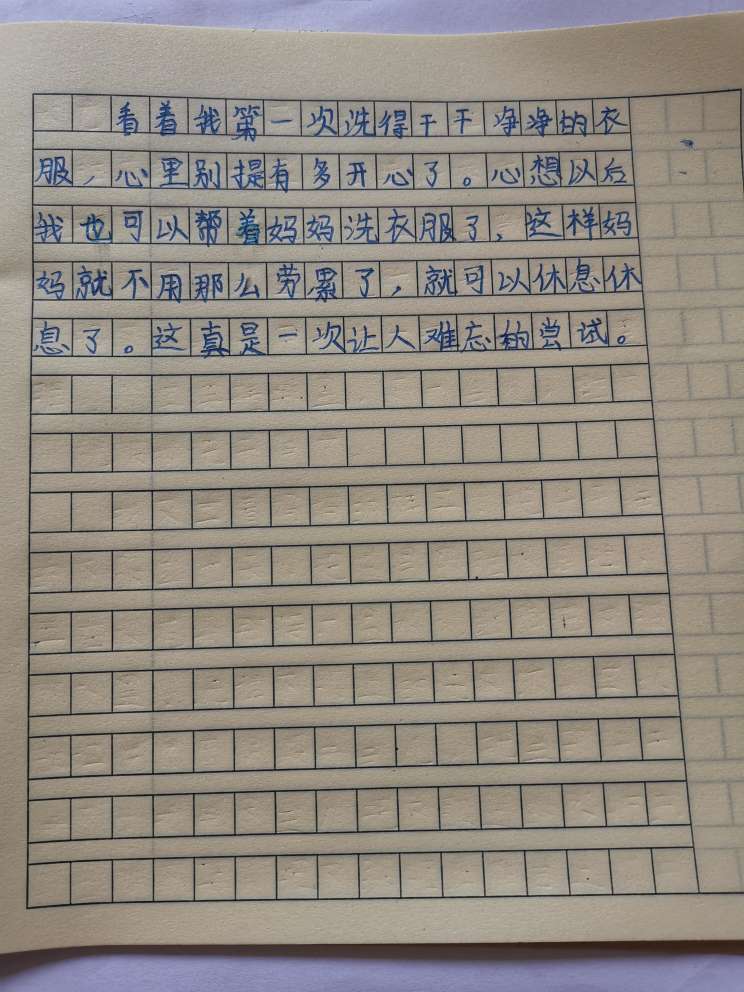 看着我第一次洗得干干净净的衣
服，心里别提有多开心了。心想以后
我也可以帮着妈妈洗衣服了，这样妈
妈就不用那么劳累了，就可以休息休
息了。这真是一次让人难忘的尝试。